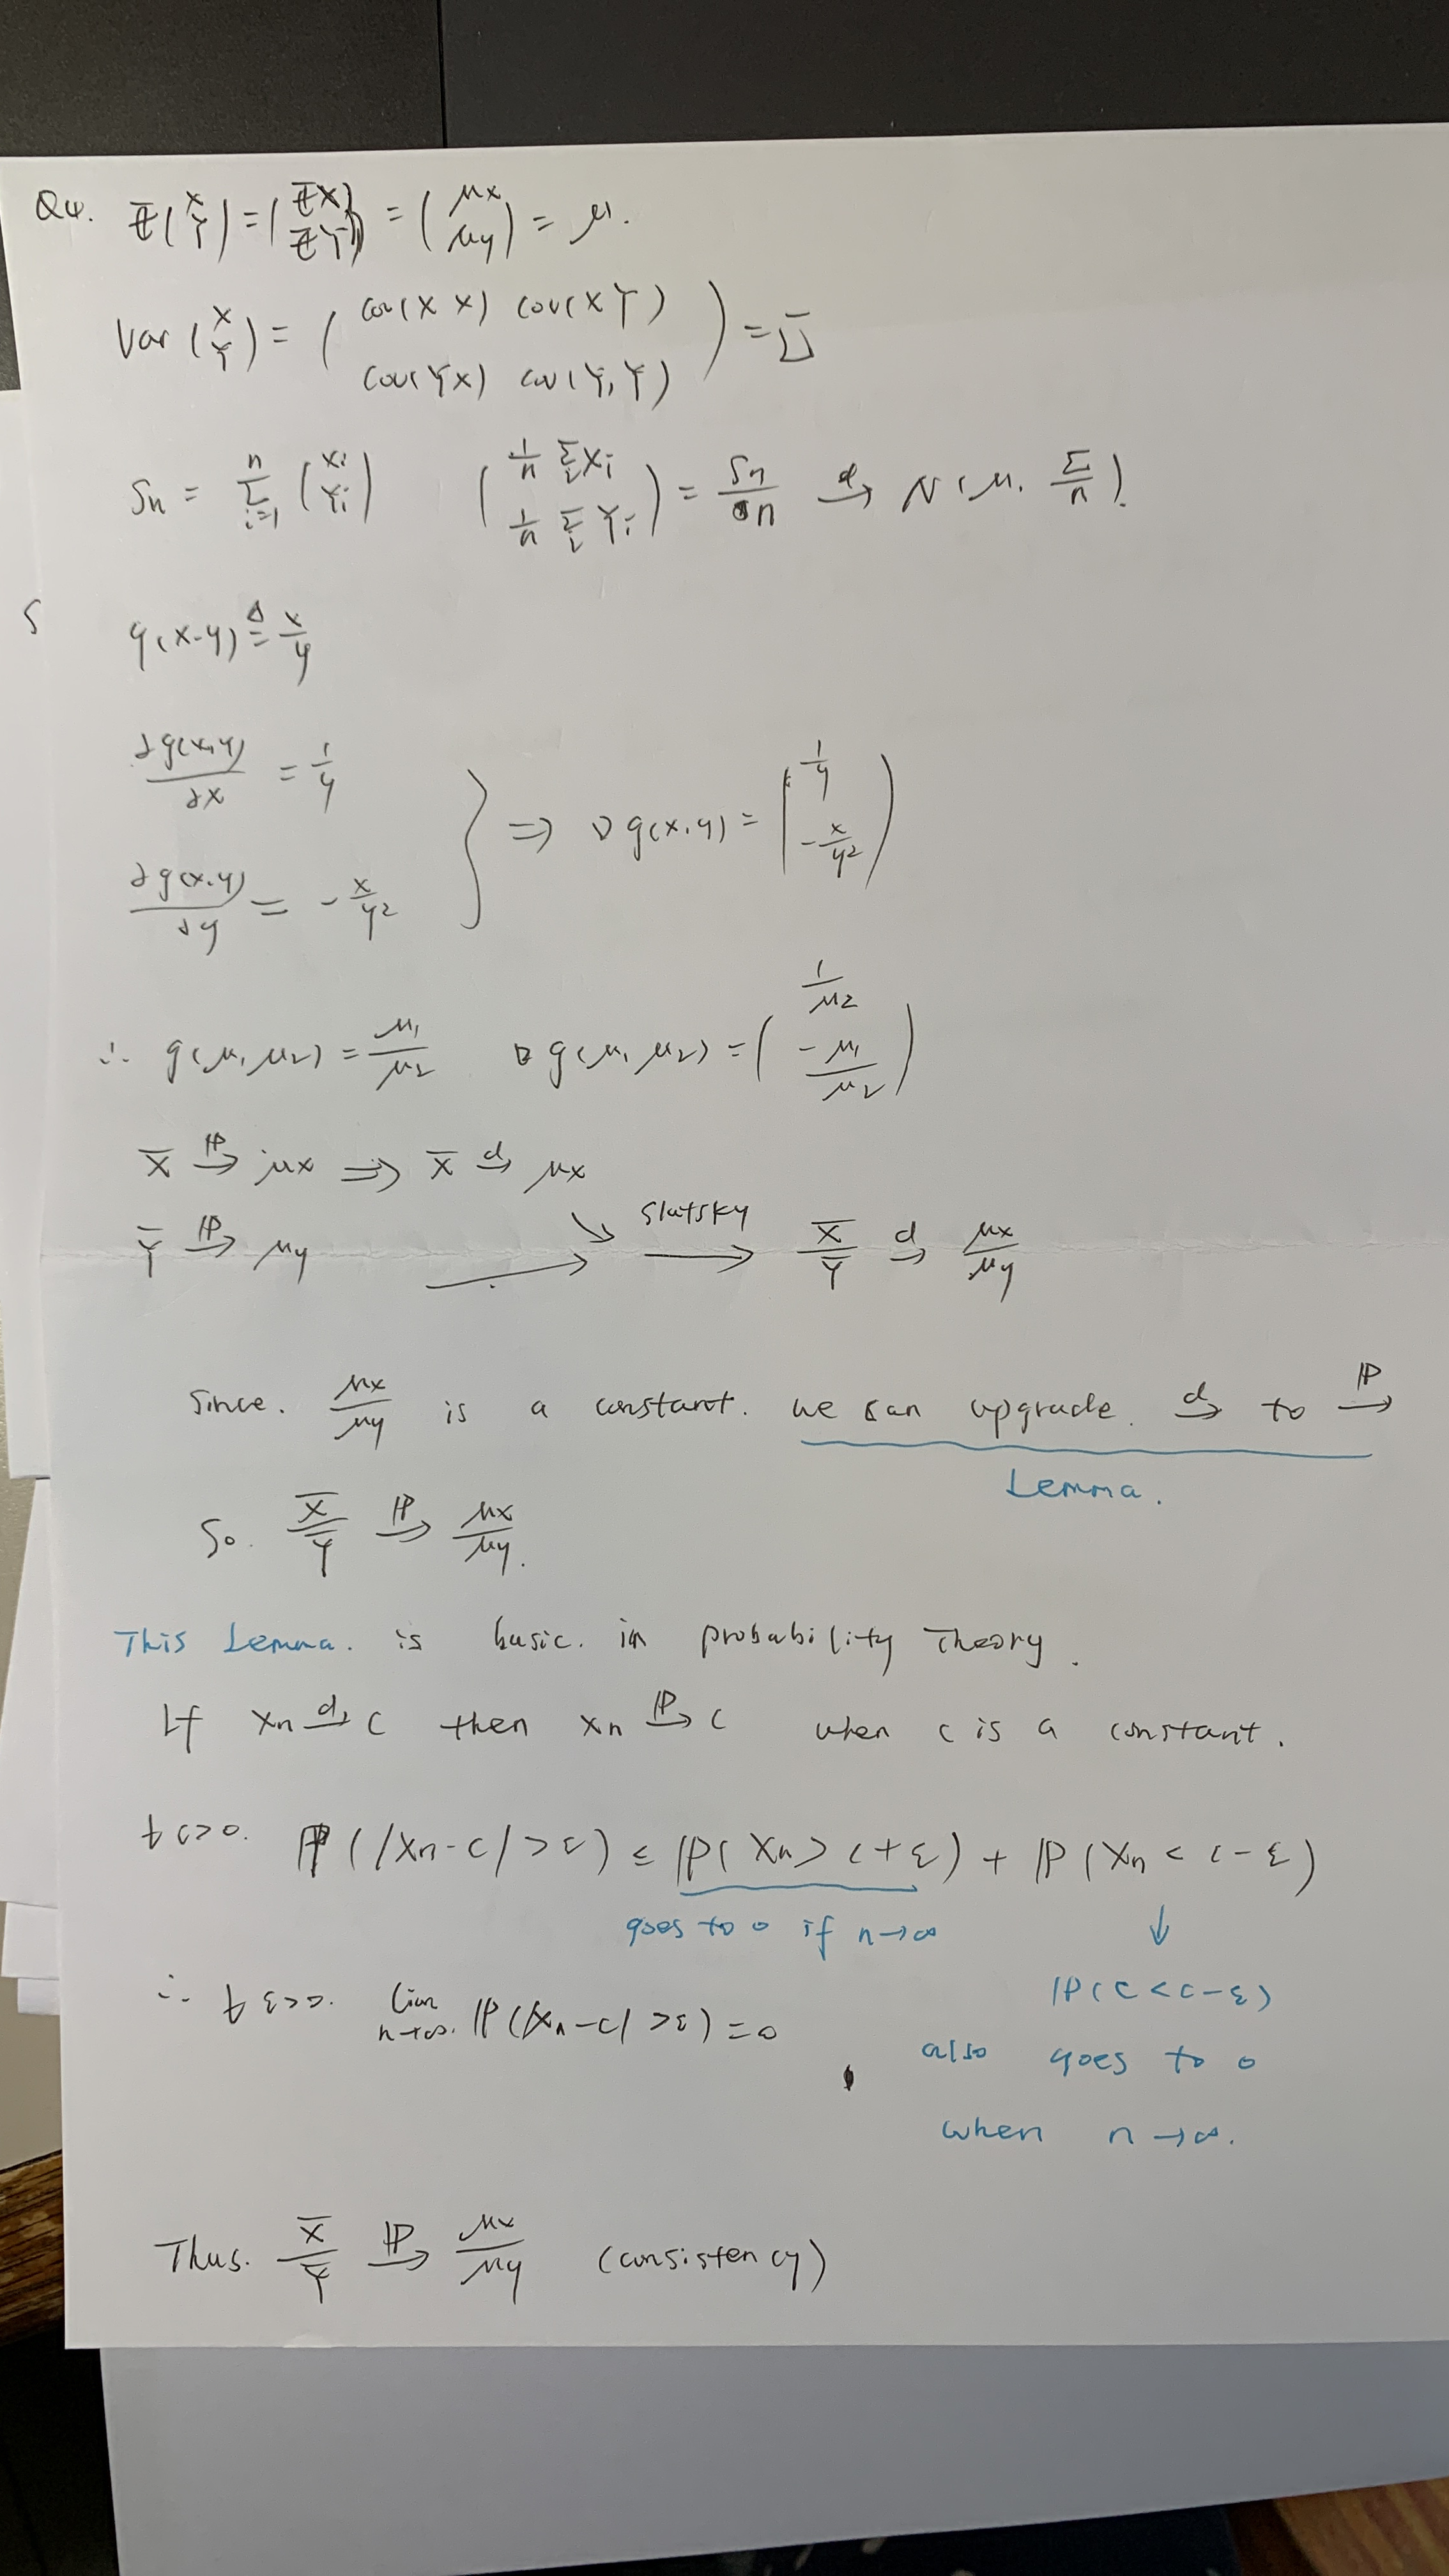 Q4. E(X Y) = (EX EY) = (μx μy) = μ.
Var(X Y) = ( cov(X X) cov(X Y) cov(Y X) cov(Y, Y) ) = Σ
Sn = Σ_{i=1}^{n} (Xi Yi) ( 1/n Σ_i Xi 1/n Σ_i Yi ) = Sn/n →d N(μ, Σ/n).
S
g(x,y) ≜ x/y
∂g(x,y)/∂x = 1/y
} ⇒ ∇g(x,y) = ( 1/y -x/y² )
∂g(x,y)/∂y = -x/y²
∴ g(μ1 μ2) = μ1/μ2 ∇g(μ1 μ2) = ( 1/μ2 -μ1/μ2 )
X̄ →P μx ⇒ X̄ →d μx
Ȳ →P μy
Slutsky → X̄/Ȳ →d μx/μy
Since. μx/μy is a constant. we can upgrade. →d to →P
Lemma.
So. X̄/Ȳ →P μx/μy.
This Lemma. is basic. in probability Theory.
If Xn →d c then Xn →P c when c is a constant.
∀ ε>0. P(|Xn-c|>ε) ≤ P(Xn > c+ε) + P(Xn < c-ε)
goes to 0 if n→∞ ↓
P(c<c-ε)
∴ ∀ ε>0. lim n→∞. P(|Xn-c|>ε)=0
also goes to 0
when n→∞.
Thus. X̄/Ȳ →P μx/μy (consistency)